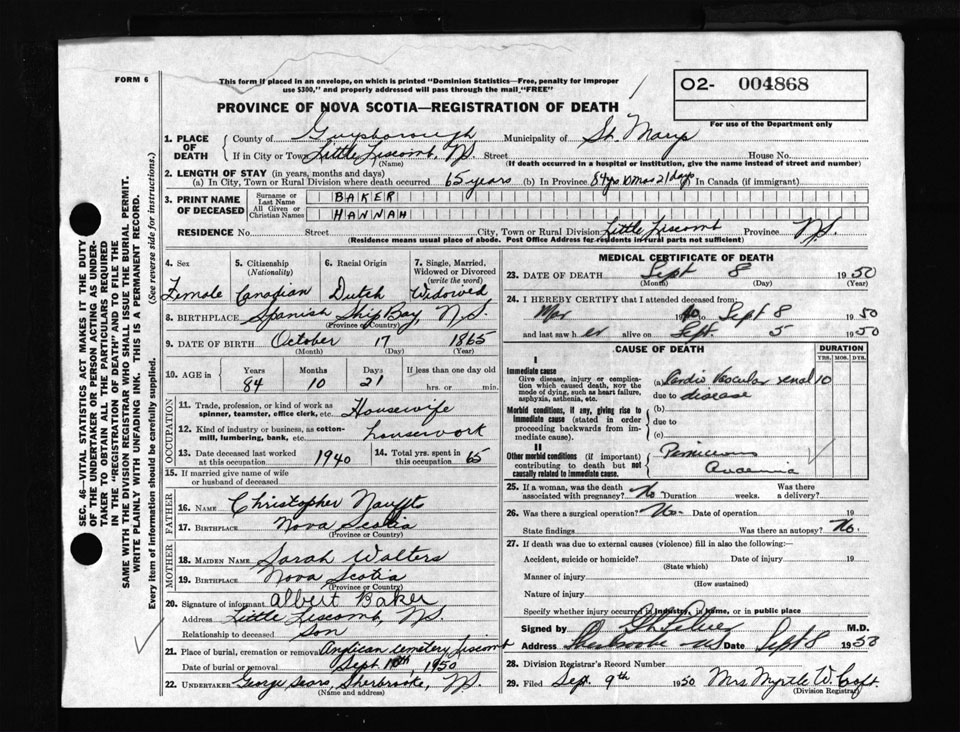 FORM 6
This form if placed in an envelope, on which is printed "Dominion Statistics—Free, penalty for improper
use $300," and properly addressed will pass through the mail "FREE"
O2- 004868
For use of the Department only
PROVINCE OF NOVA SCOTIA—REGISTRATION OF DEATH
SEC. 46—VITAL STATISTICS ACT MAKES IT THE DUTY
OF THE UNDERTAKER OR PERSON ACTING AS UNDER-
TAKER TO OBTAIN ALL THE PARTICULARS REQUIRED
IN THE "REGISTRATION OF DEATH" AND TO FILE THE
SAME WITH THE DIVISION REGISTRAR WHO SHALL ISSUE THE BURIAL PERMIT.
WRITE PLAINLY WITH UNFADING INK. THIS IS A PERMANENT RECORD.
Every item of information should be carefully supplied. (See reverse side for instructions.)
1. PLACE OF DEATH County of Guysborough Municipality of St. Marys
If in City or Town Little Liscomb, N.S. Street House No.
(Name) (If death occurred in a hospital or institution, give the name instead of street and number)
2. LENGTH OF STAY (in years, months and days)
(a) In City, Town or Rural Division where death occurred 65 years (b) In Province 84 yrs 10 mos 21 days In Canada (if immigrant)
3. PRINT NAME OF DECEASED Surname or Last Name BAKER
All Given or Christian Names HANNAH
RESIDENCE No. Street City, Town or Rural Division Little Liscomb Province N.S.
(Residence means usual place of abode. Post Office Address for residents in rural parts not sufficient)
4. Sex 5. Citizenship (Nationality) 6. Racial Origin 7. Single, Married, Widowed or Divorced (write the word)
Female Canadian Dutch Widowed
8. BIRTHPLACE Spanish Ship Bay, N.S.
(Province or Country)
9. DATE OF BIRTH October 17 1865
(Month) (Day) (Year)
10. AGE in Years Months Days If less than one day old
84 10 21 hrs. or min.
OCCUPATION
11. Trade, profession, or kind of work as spinner, teamster, office clerk, etc. Housewife
12. Kind of industry or business, as cotton-mill, lumbering, bank, etc. housework
13. Date deceased last worked at this occupation 1940 14. Total yrs. spent in this occupation 65
15. If married give name of wife or husband of deceased
FATHER
16. NAME Christopher Nauffts
17. BIRTHPLACE Nova Scotia
(Province or Country)
MOTHER
18. MAIDEN NAME Sarah Walters
19. BIRTHPLACE Nova Scotia
(Province or Country)
20. Signature of informant Albert Baker
Address Little Liscomb, N.S.
Relationship to deceased Son
21. Place of burial, cremation or removal Anglican cemetery Liscomb
Date of burial or removal Sept 10th, 1950
22. UNDERTAKER George Sears, Sherbrooke, N.S.
(Name and address)
MEDICAL CERTIFICATE OF DEATH
23. DATE OF DEATH Sept 8 1950
(Month) (Day) (Year)
24. I HEREBY CERTIFY that I attended deceased from
Mar 1940 to Sept 8 1950
and last saw her alive on Sept. 5 1950
CAUSE OF DEATH DURATION
YRS. MOS. DYS.
I
Immediate cause
Give disease, injury or complication which caused death, not the mode of dying, such as heart failure, asphyxia, asthenia, etc.
(a) Cardio Vascular renal 10
due to disease
Morbid conditions, if any, giving rise to immediate cause (stated in order proceeding backwards from immediate cause).
(b)
due to
(c)
II
Other morbid conditions (if important) contributing to death but not causally related to immediate cause.
Pernicious
Anaemia
25. If a woman, was the death associated with pregnancy? No Duration weeks. Was there a delivery?
26. Was there a surgical operation? No Date of operation 19
State findings Was there an autopsy? No
27. If death was due to external causes (violence) fill in also the following:—
Accident, suicide or homicide? Date of injury 19
(State which)
Manner of injury
(How sustained)
Nature of injury
Specify whether injury occurred in industry, in home, or in public place
Signed by M.D.
Address Sherbrooke NS Date Sept 8 1950
28. Division Registrar's Record Number
29. Filed Sept. 9th 1950 Mrs Myrtle W. Croft.
(Division Registrar)